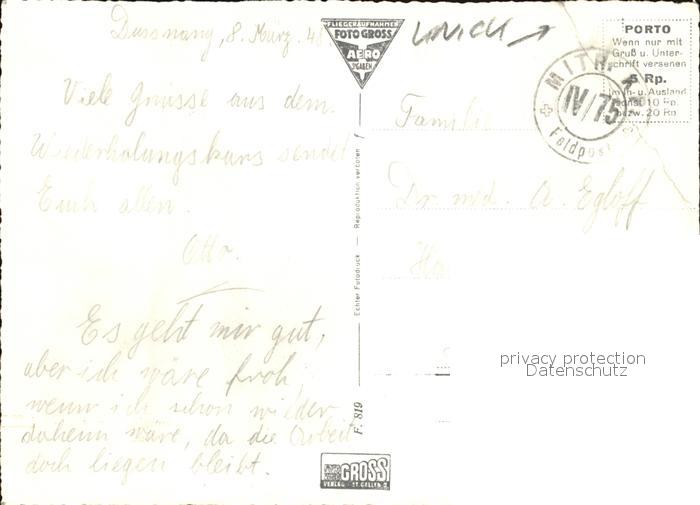 Dussnang, 8. März. 48.
Viele Grüsse aus dem
Wiederholungskurs sendet
Euch allen.
Otto.
Es geht mir gut,
aber ich wäre froh,
wenn ich schon wieder
daheim wäre, da die Arbeit
doch liegen bleibt.
FLIEGERAUFNAHMEN
FOTO GROSS
AERO
ST GALLEN
Echter Fotodruck — Reproduktion verboten
F. 819
GROSS
VERLAG ST. GALLEN
PORTO
Wenn nur mit
Gruß u. Unter-
schrift versehen
5 Rp.
im In- u. Ausland
sonst 10 Rp.
bezw. 20 Rp.
MITR.
IV/75
Feldpost
Familie
Dr. med. A. Egloff
privacy protection
Datenschutz